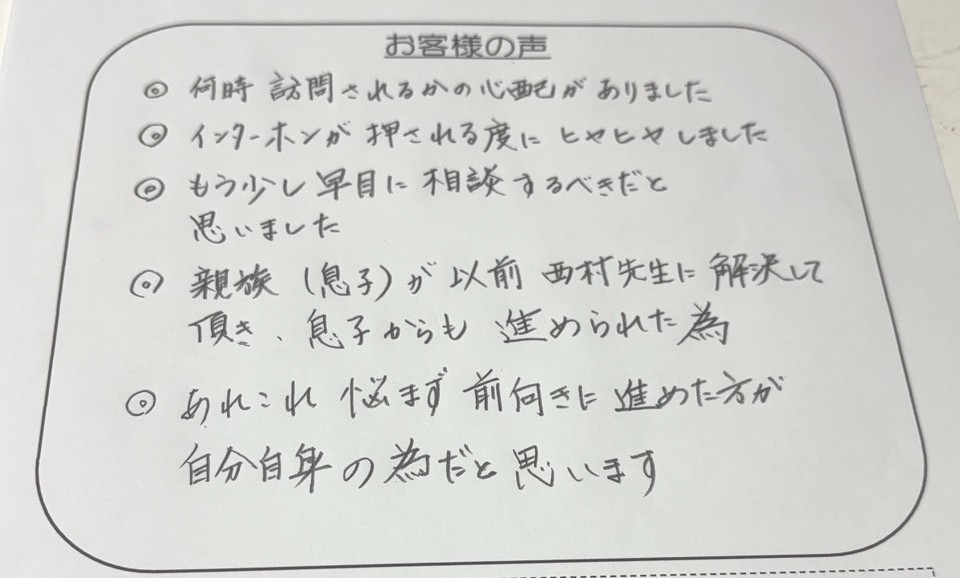 お客様の声
◎ 何時 訪問されるかの心配がありました
◎ インターホンが 押される度に ヒヤヒヤしました
◎ もう少し早目に相談するべきだと
思いました
◎ 親族(息子)が以前 西村先生に解決して
頂き、息子からも 進められた為
◎ あれこれ 悩まず 前向きに進めた方が
自分自身の為だと思います